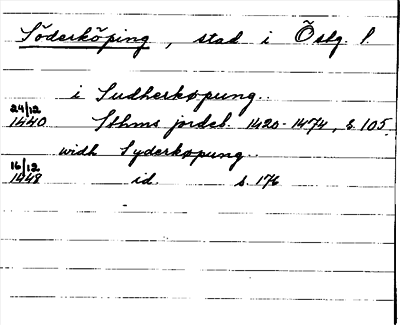 Söderköping, stad i Östg. l.
i Sudherkøpung..
24/12
1440 Sthms jordeb. 1420-1474, s. 105.
widh Syderkøpung..
16/12
1448 id. s. 176